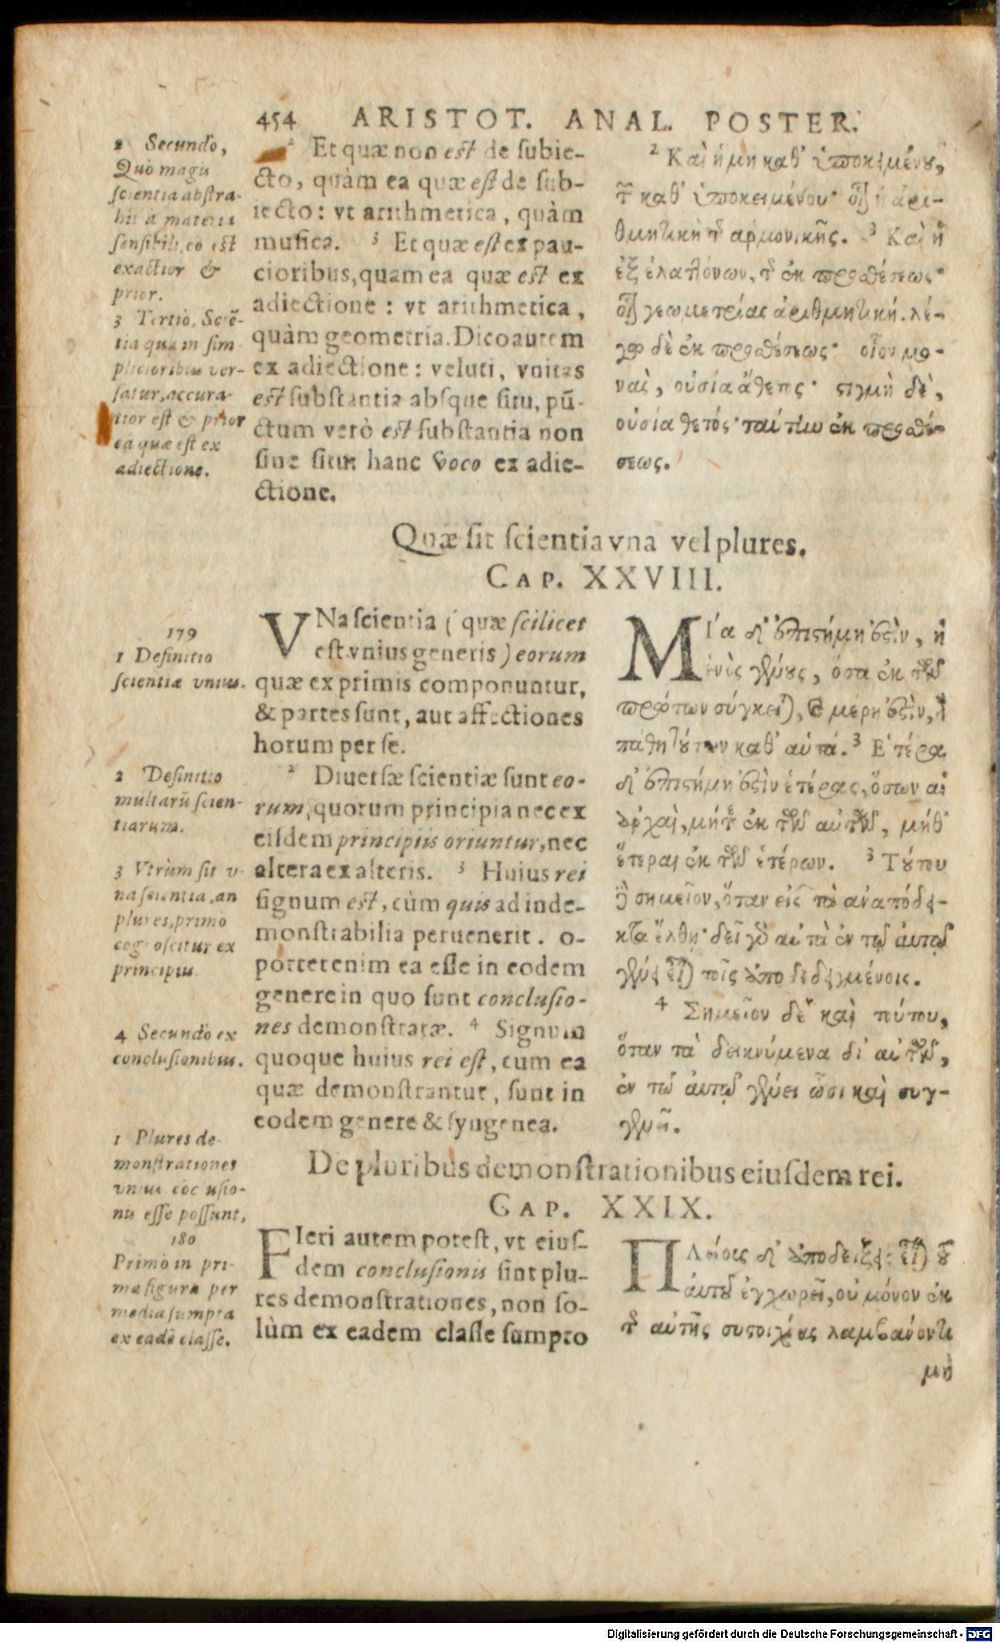 454 ARISTOT. ANAL. POSTER.
2 Secundò,
Quò magis
scientia abstra-
hit à materia
sensibili, eò est
exactior &
prior.
3 Tertiò, Sciē-
tia quæ in sim
plicioribus ver-
satur, accura-
tior est & prior
ea quæ est ex
adiectione.
2 Et quæ non est de subie-
cto, quàm ea quæ est de sub-
iecto: vt arithmetica, quàm
musica. 3 Et quæ est ex pau-
cioribus, quam ea quæ est ex
adiectione: vt arithmetica,
quàm geometria. Dico autem
ex adiectione: veluti, vnitas
est substantia absque situ, pū-
ctum verò est substantia non
sine situ: hanc voco ex adie-
ctione.
2 Καὶ ἡ μὴ καθ' ὑποκειμένου,
τῆς καθ' ὑποκειμένου· οἷον ἡ ἀρι-
θμητικὴ τῆς ἁρμονικῆς. 3 Καὶ ἡ
ἐξ ἐλαττόνων, τῆς ἐκ προσθέσεως·
οἷον γεωμετρίας ἀριθμητική. λέ-
γω δὲ ἐκ προσθέσεως· οἷον μο-
νὰς, οὐσία ἄθετος· στιγμὴ δὲ,
οὐσία θετός· ταύτην ἐκ προσθέ-
σεως.
Quæ sit scientia vna vel plures.
CAP. XXVIII.
179
1 Definitio
scientiæ vnius.
2 Definitio
multarū scien-
tiarum.
3 Vtrùm sit v-
na scientia, an
plures, primò
cognoscitur ex
principiis
4 Secundò ex
conclusionibus.
VNa scientia (quæ scilicet
est vnius generis) eorum
quæ ex primis componuntur,
& partes sunt, aut affectiones
horum per se.
2 Diuersæ scientiæ sunt eo-
rum, quorum principia nec ex
eisdem principiis oriuntur, nec
altera ex alteris. 3 Huius rei
signum est, cùm quis ad inde-
monstrabilia peruenerit. o-
portet enim ea esse in eodem
genere in quo sunt conclusio-
nes demonstratæ. 4 Signum
quoque huius rei est, cum ea
quæ demonstrantur, sunt in
eodem genere & syngenea.
Μία δ' ἐπιστήμη ἐστὶν, ἡ
ἑνὸς γένους, ὅσα ἐκ τῶν
πρώτων σύγκειται, καὶ μέρη ἐστὶν, ἢ
πάθη τούτων καθ' αὑτά. 2 Ἑτέρα
δ' ἐπιστήμη ἐστὶν ἑτέρας, ὅσων αἱ
ἀρχαὶ, μήτ' ἐκ τῶν αὐτῶν, μήθ'
ἕτεραι ἐκ τῶν ἑτέρων. 3 Τούτου
δὲ σημεῖον, ὅταν εἰς τὰ ἀναπόδει-
κτα ἔλθῃ· δεῖ γὰρ αὐτὰ ἐν τῷ αὐτῷ
γένει εἶναι τοῖς ἀποδεδειγμένοις.
4 Σημεῖον δὲ καὶ τούτου,
ὅταν τὰ δεικνύμενα δι' αὐτῶν,
ἐν τῷ αὐτῷ γένει ὦσι καὶ συγ-
γενῆ.
De pluribus demonstrationibus eiusdem rei.
CAP. XXIX.
1 Plures de-
monstrationes
vnius cōclusio-
nis esse possunt,
180
Primò in pri-
ma figura per
media sumpta
ex eadē classe.
FIeri autem potest, vt eius-
dem conclusionis sint plu-
res demonstrationes, non so-
lùm ex eadem classe sumpto
Πλείους δ' ἀποδείξεις εἶναι τοῦ
αὐτοῦ ἐγχωρεῖ, οὐ μόνον ἐκ
τῆς αὐτῆς συστοιχίας λαμβάνοντι
μὴ
Digitalisierung gefördert durch die Deutsche Forschungsgemeinschaft - DFG